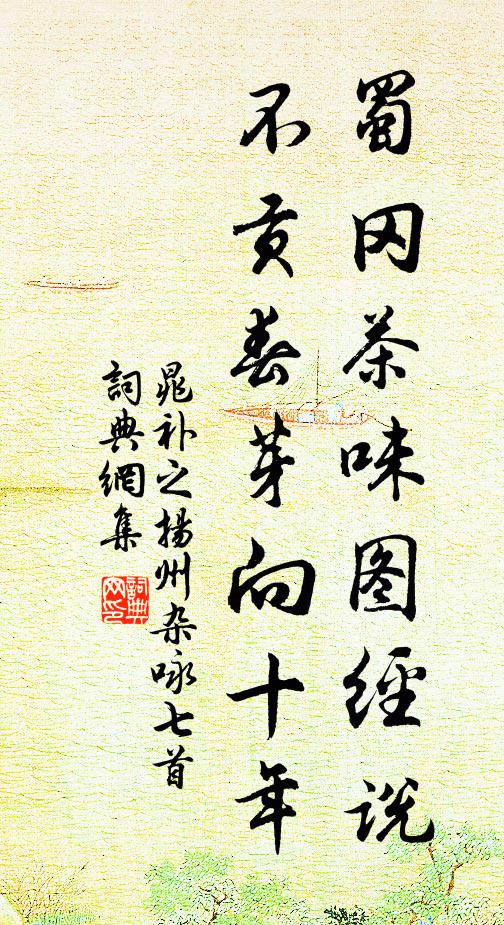 蜀冈茶味图经说
不贡春芽向十年
晁补之扬州杂咏七首
詞典網集
詞典网印